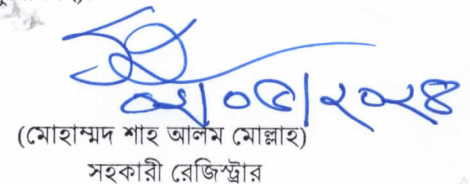 ০২/০৫/২০২৪
(মোহাম্মদ শাহ আলম মোল্লাহ)
সহকারী রেজিস্ট্রার